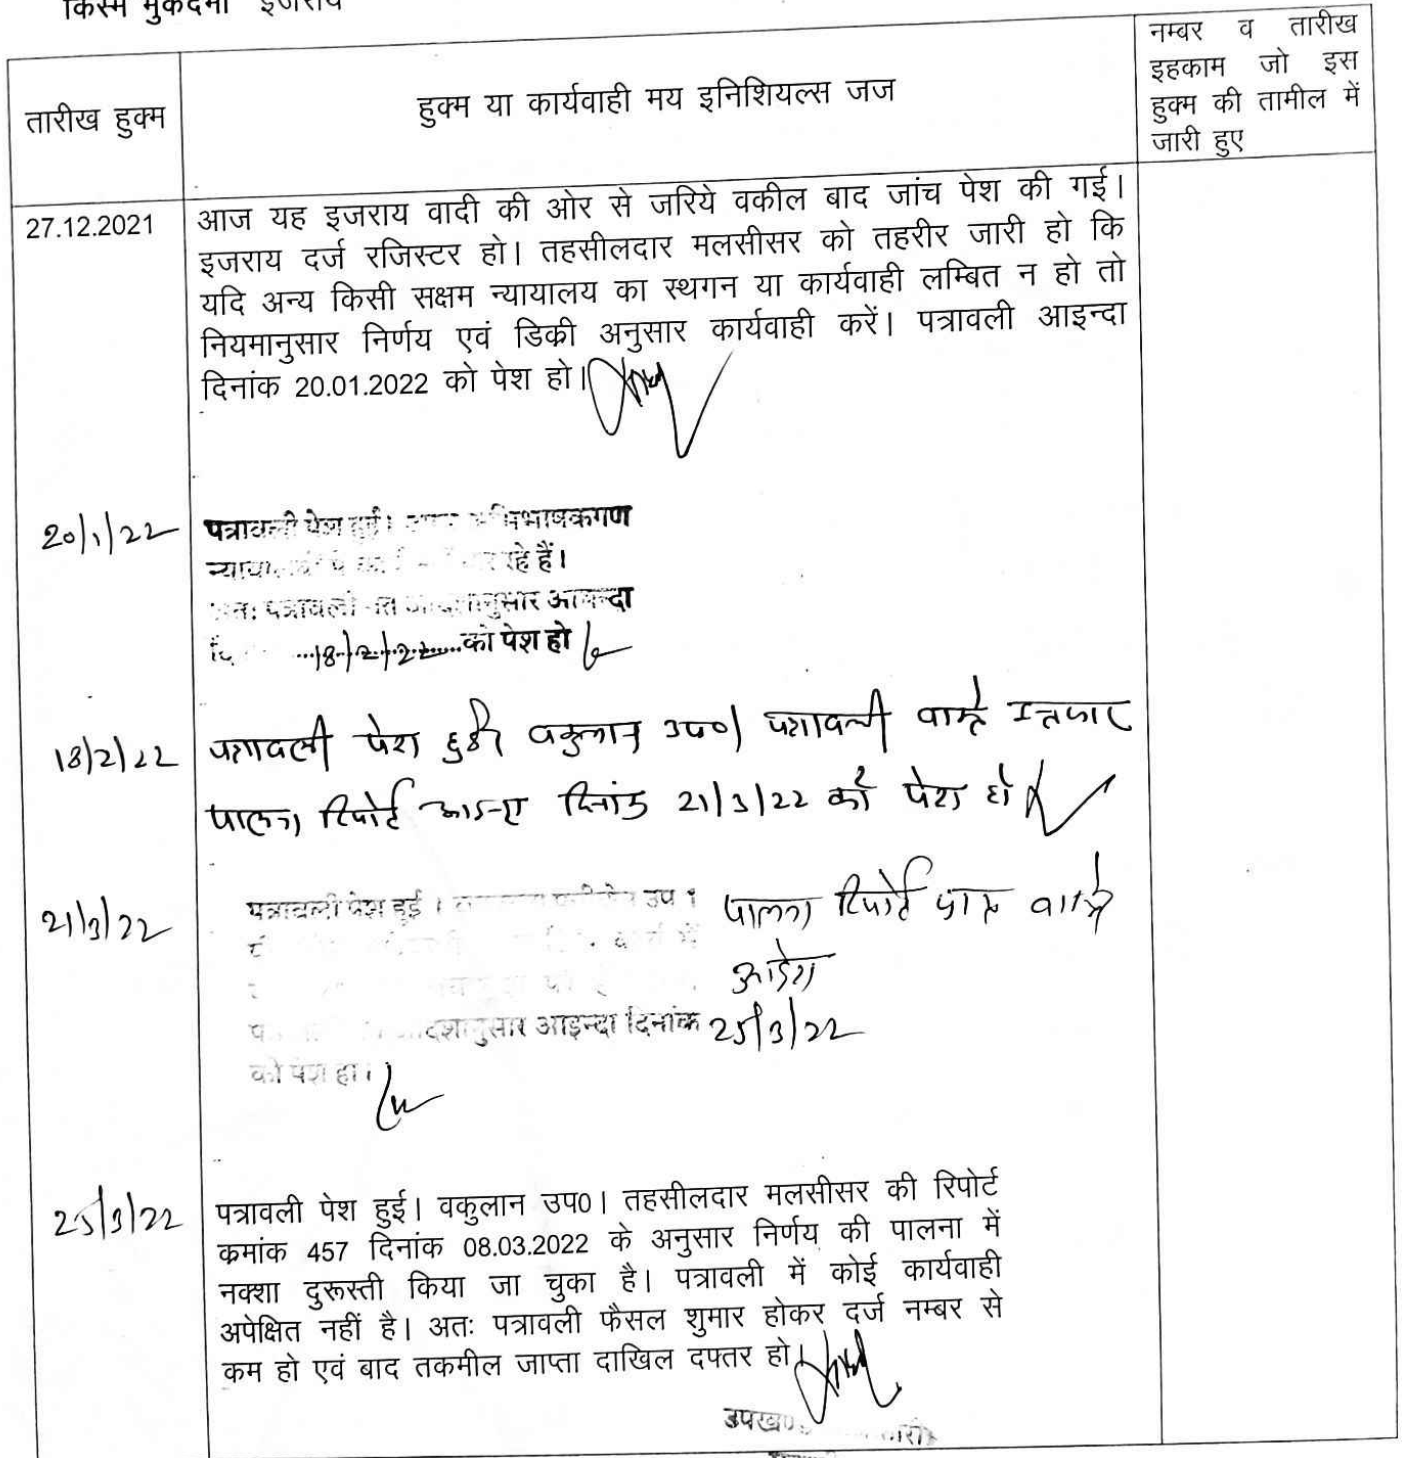 किस्म मुकदमा इजराय
तारीख हुक्म
हुक्म या कार्यवाही मय इनिशियल्स जज
नम्बर व तारीख
इहकाम जो इस
हुक्म की तामील में
जारी हुए
27.12.2021
आज यह इजराय वादी की ओर से जरिये वकील बाद जांच पेश की गई।
इजराय दर्ज रजिस्टर हो। तहसीलदार मलसीसर को तहरीर जारी हो कि
यदि अन्य किसी सक्षम न्यायालय का स्थगन या कार्यवाही लम्बित न हो तो
नियमानुसार निर्णय एवं डिक्री अनुसार कार्यवाही करें। पत्रावली आइन्दा
दिनांक 20.01.2022 को पेश हो।
20/1/22
पत्रावली पेश हुई। अभिभाषकगण
रहे हैं।
अतः पत्रावली आइन्दा
18/2/22 को पेश हो
18/2/22
पत्रावली पेश हुई वकुलान उप०। पत्रावली वास्ते इन्तजार
पालना रिपोर्ट आइन्दा दिनांक 21/3/22 को पेश हो
21/3/22
पत्रावली पेश हुई। उप। पालना रिपोर्ट प्राप्त वास्ते
आदेश
आदेशानुसार आइन्दा दिनांक 25/3/22
को पेश हो।
25/3/22
पत्रावली पेश हुई। वकुलान उप०। तहसीलदार मलसीसर की रिपोर्ट
क्रमांक 457 दिनांक 08.03.2022 के अनुसार निर्णय की पालना में
नक्शा दुरूस्ती किया जा चुका है। पत्रावली में कोई कार्यवाही
अपेक्षित नहीं है। अतः पत्रावली फैसल शुमार होकर दर्ज नम्बर से
कम हो एवं बाद तकमील जाप्ता दाखिल दफ्तर हो।